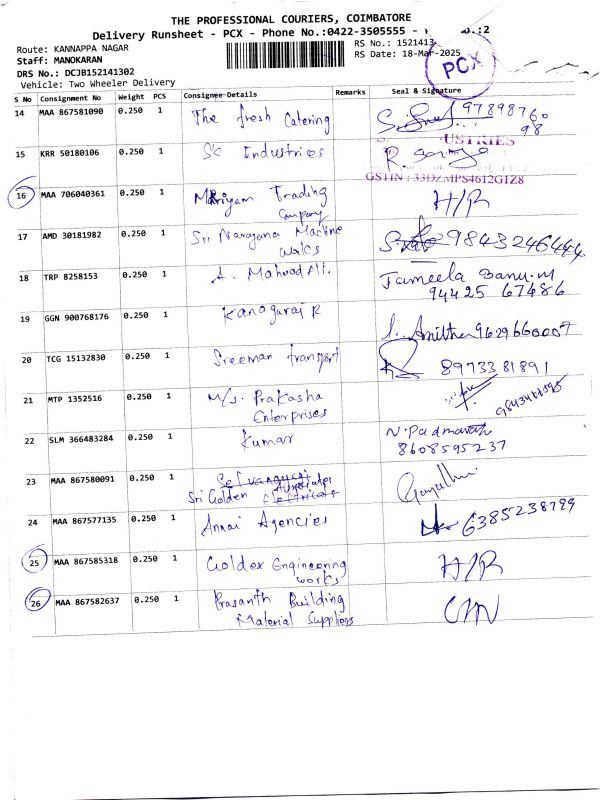 THE PROFESSIONAL COURIERS, COIMBATORE
Delivery Runsheet - PCX - Phone No.:0422-3505555 - :2
Route: KANNAPPA NAGAR
RS No.: 1521413
Staff: MANOKARAN
RS Date: 18-Mar-2025
DRS No.: DCJB152141302
PCX
Vehicle: Two Wheeler Delivery
S No Consignment No Weight PCS Consignee Details Remarks Seal & Signature
14 MAA 867581090 0.250 1 The fresh Catering 9789876098
15 KRR 50180106 0.250 1 SK Industries
USTRIES
GSTIN : 33DZMPS4612G1Z8
16 MAA 706040361 0.250 1 Mariyam Trading Company H/R
17 AMD 30181982 0.250 1 Sri Narayana Machine works 9843246444
18 TRP 8258153 0.250 1 A. Mahvod Ali. Jameela Banu.M
94425 67486
19 GGN 900768176 0.250 1 Kanagaraj R Amitha 9629660007
20 TCG 15132830 0.250 1 Sreeman transport 8973381891
21 MTP 1352516 0.250 1 M/s. Prakasha Enterprises
22 SLM 366483284 0.250 1 Kumar N.Padmavath
8608595237
23 MAA 867580091 0.250 1 Sri Golden Gayathri
24 MAA 867577135 0.250 1 Annai Agencies 6385238799
25 MAA 867585318 0.250 1 Goldex Engineering works H/R
26 MAA 867582637 0.250 1 Prasanth Building Material Suppliers